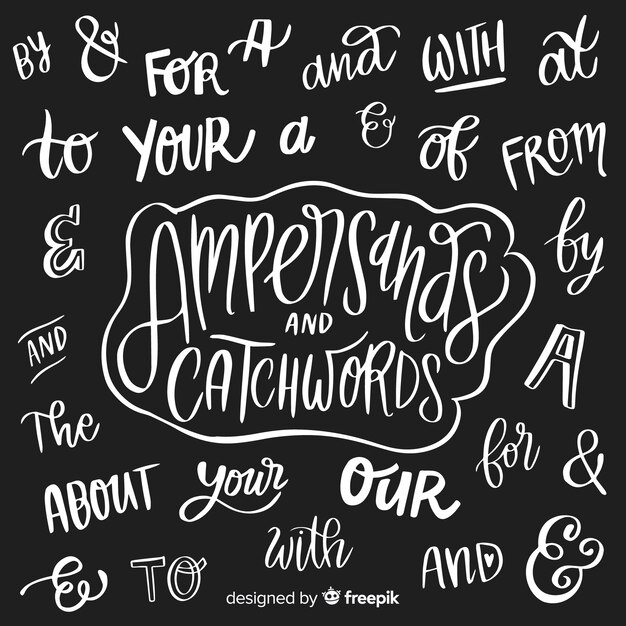 BY & FOR A and WITH at
to YOUR a & & of FROM
&
AMPERSANDS
AND
CATCHWORDS
by
AND
A
The
ABOUT your OUR for &
& TO with AND &
designed by freepik